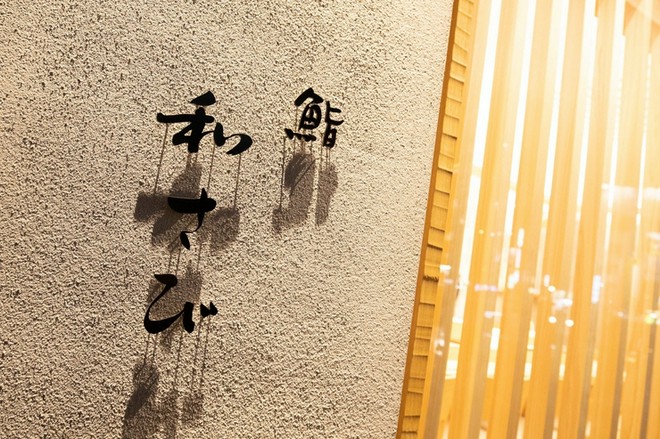 鮨
和さび